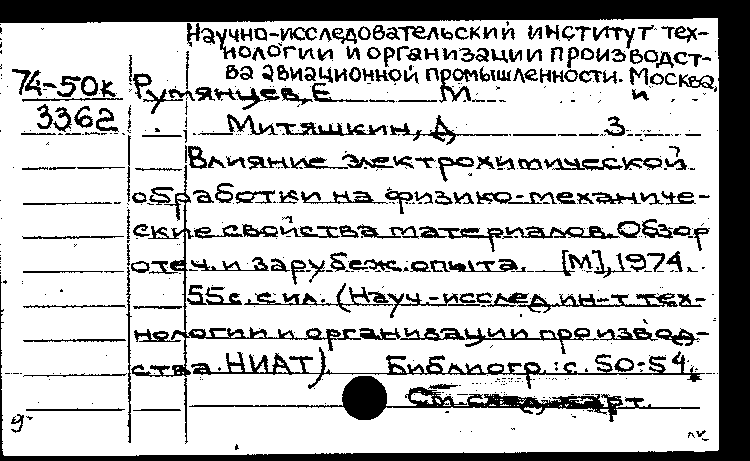 Научно-исследовательский институт тех-
нологии и организации производст-
ва авиационной промышленности. Москва.
74-50к Румянцев, Е М и
3362 Митяшкин, Д З
Влияние электрохимической
обработки на физико-механиче-
ские свойства материалов. Обзор
отеч. и зарубеж. опыта. [М], 1974.
55с. с ил. (Науч.-исслед. ин-т тех-
нологии и организации производ-
ства. НИАТ). Библиогр.: с. 50-54.
См. след. карт.
9-